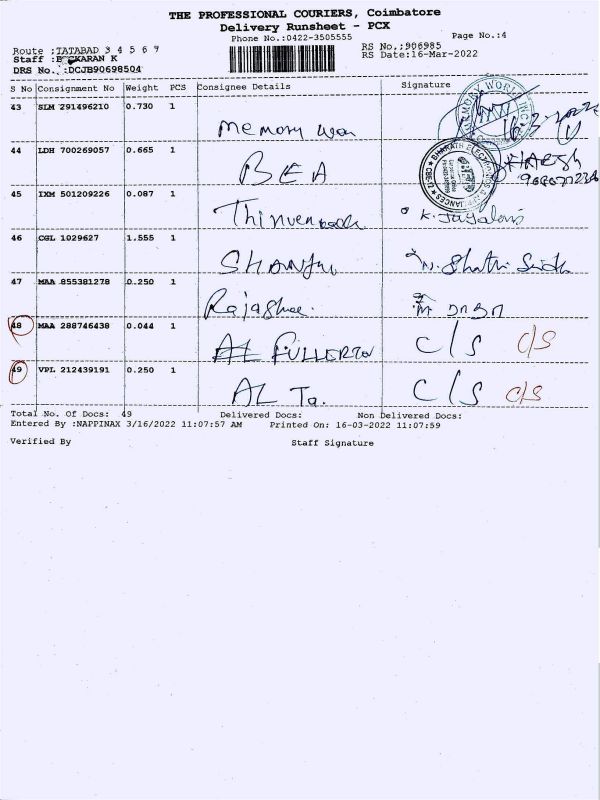 THE PROFESSIONAL COURIERS, Coimbatore
Delivery Runsheet - PCX
Phone No.:0422-3505555
Page No.:4
Route :TATABAD 3 4 5 6 7
RS No.:906985
Staff : KARAN K
RS Date:16-Mar-2022
DRS No. :DCJB90698504
S No Consignment No Weight PCS Consignee Details Signature
43 SLM 291496210 0.730 1 Memory
MEMORY WORLD INC
16-3-2022
44 LDH 700269057 0.665 1 BEA
BHARATH ELECTRONICS & APPLIANCES CBE-12
HARSH
45 IXM 501209226 0.087 1
K.
46 CGL 1029627 1.555 1
N.
47 MAA 855381278 0.250 1 Rajashree.
48 MAA 288746438 0.044 1 AL FULLERTON C/S C/S
49 VPL 212439191 0.250 1 AL To. C/S C/S
Total No. Of Docs: 49 Delivered Docs: Non Delivered Docs:
Entered By :NAPPINAX 3/16/2022 11:07:57 AM Printed On: 16-03-2022 11:07:59
Verified By Staff Signature